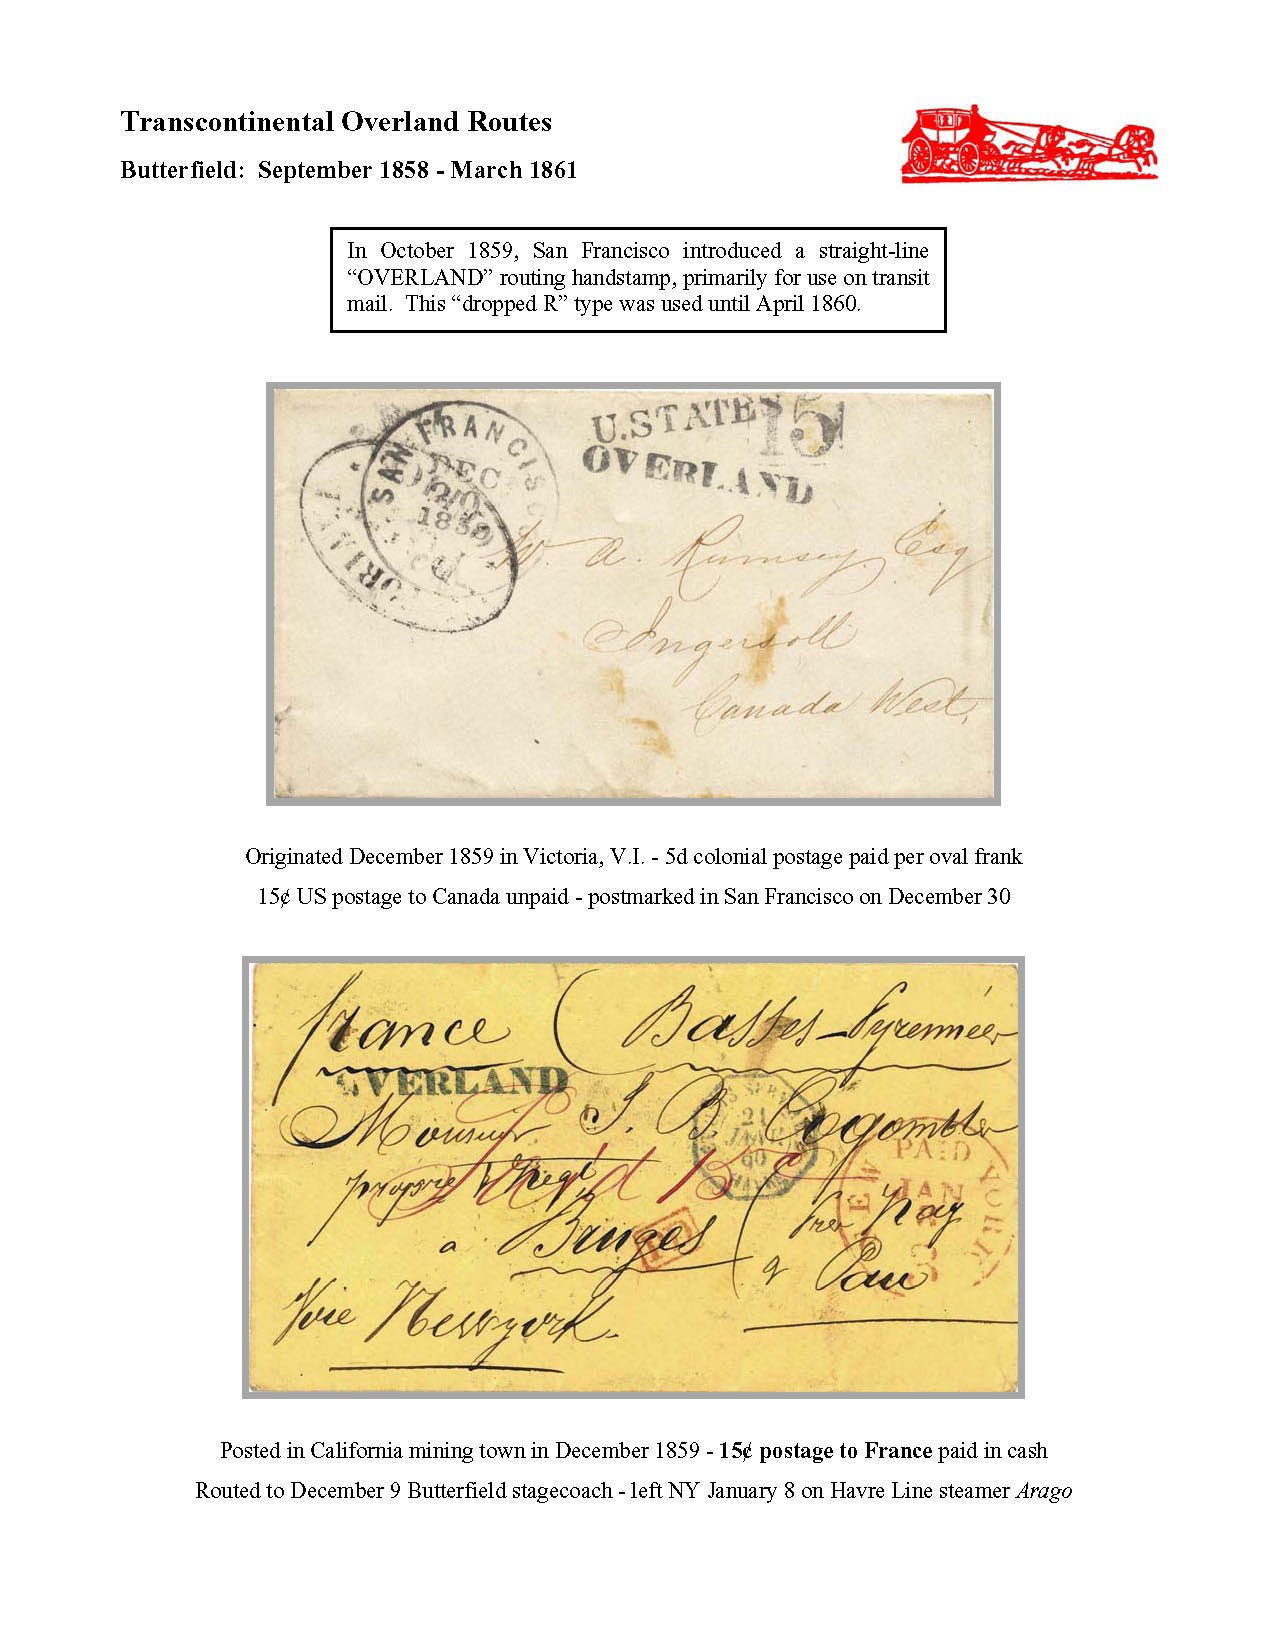 Transcontinental Overland Routes
Butterfield:  September 1858 - March 1861
In October 1859, San Francisco introduced a straight-line
“OVERLAND” routing handstamp, primarily for use on transit
mail.  This “dropped R” type was used until April 1860.
SAN FRANCISCO
DEC
30
1859
U.STATES
15
OVERLAND
W. A. Rumsey Esq
Ingersoll
Canada West,
Originated December 1859 in Victoria, V.I. - 5d colonial postage paid per oval frank
15¢ US postage to Canada unpaid - postmarked in San Francisco on December 30
france ( Basses-Pyrennées
OVERLAND
Monsieur J. B. Cogombles
21
JANV.
60
HAVRE
NEW YORK
PAID
JAN
Paid 15
propre
a Bruges ( Nay
Pau
PD
Voie Newyork.
Posted in California mining town in December 1859 - 15¢ postage to France paid in cash
Routed to December 9 Butterfield stagecoach - left NY January 8 on Havre Line steamer Arago